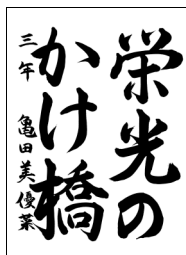 栄光の
かけ橋
三年 亀田美優菜